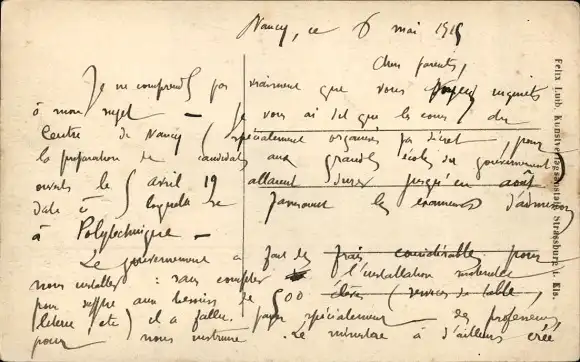 Nancy, ce 6 mai 1919
Chers parents,
Je ne comprends pas vraiment que vous soyez inquiets
à mon sujet — Je vous ai dit que les cours du
Centre de Nancy (spécialement organisés par décret pour
la préparation de candidats aux grandes écoles du gouvernement
ouverts le 5 avril 19 allaient durer jusqu'en août
date à laquelle se passeront les examens d'admission
à Polytechnique —
Le gouvernement a fait des frais considérables pour
nous installer : sans compter l'installation
pour suffire aux besoins de 500 élèves (services de table,
literie etc) il a fallu payer spécialement des professeurs
pour nous instruire. Le ministère a d'ailleurs créé
Felix Luib, Kunstverlagsanstalt, Strassburg i. Els.